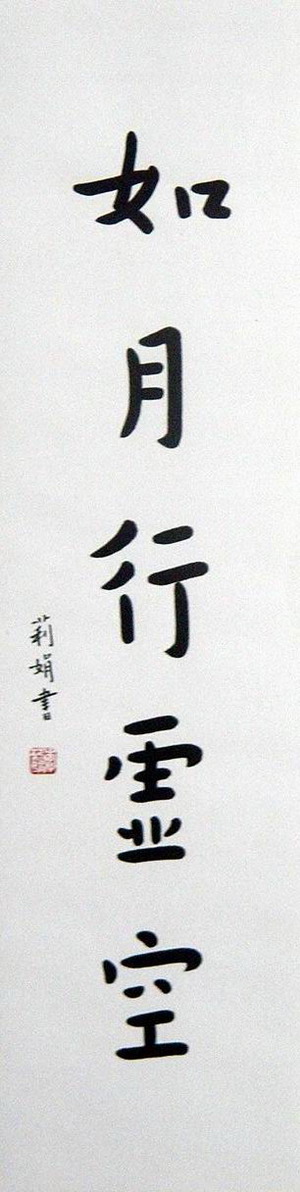 如月行虚空
莉娟書